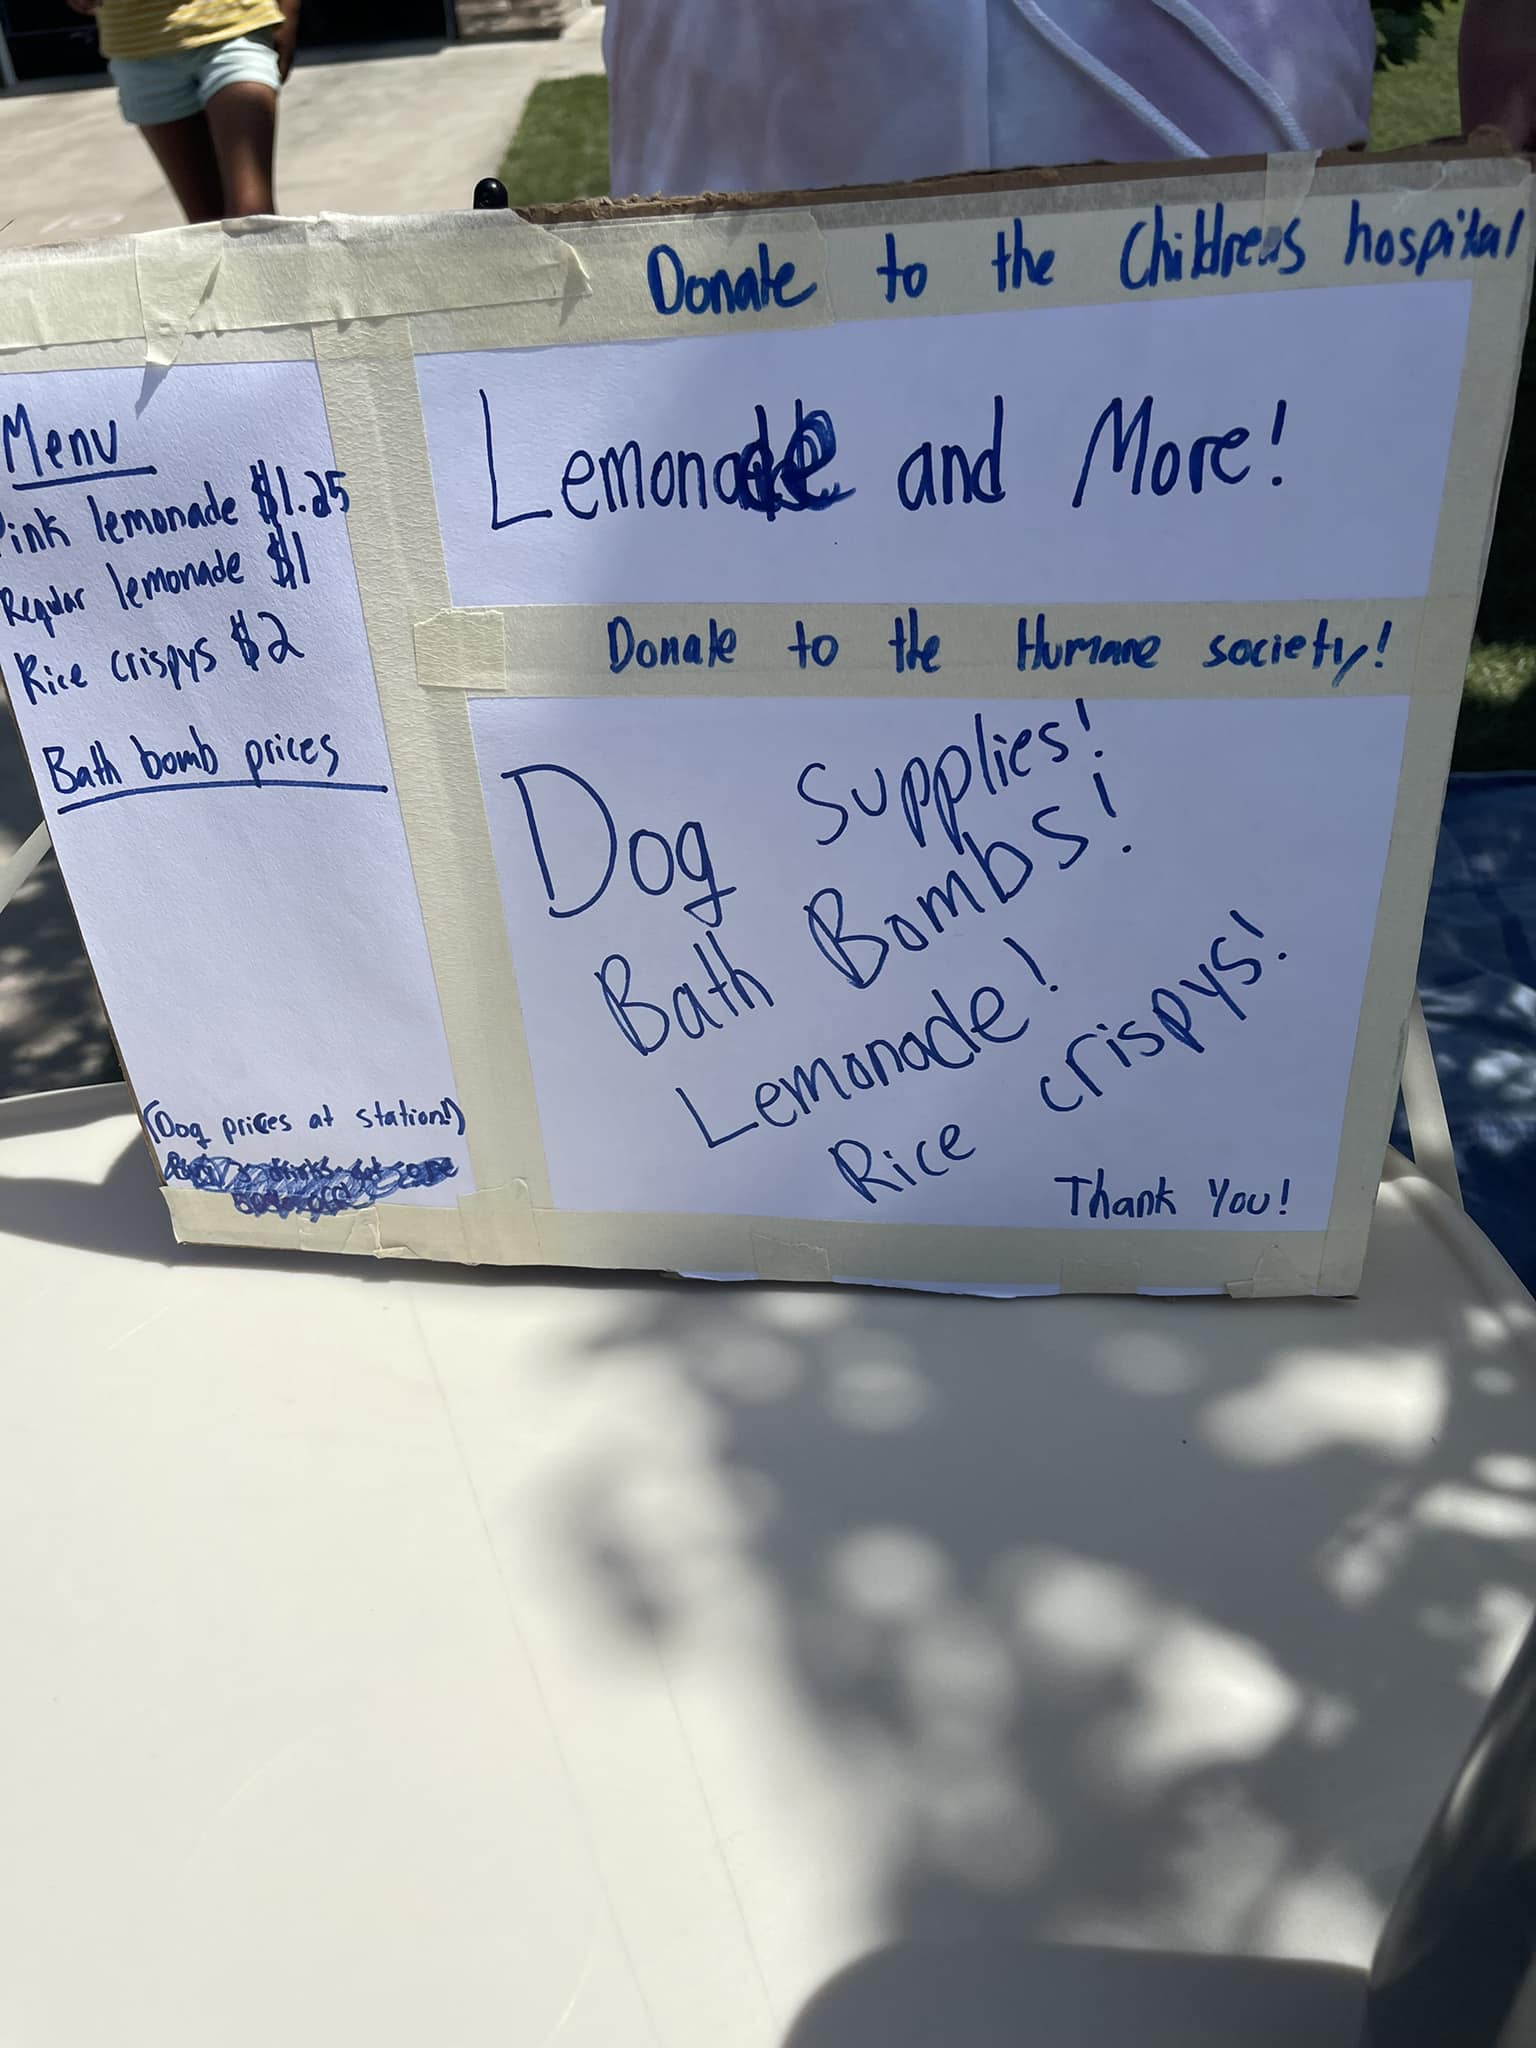 Donate to the Childrens hospital
Menu
Pink lemonade $1.25
Regular lemonade $1
Rice crispys $2
Bath bomb prices
(Dog prices at station!)
Lemonade and More!
Donate to the Humane society!
Dog Supplies!
Bath Bombs!
Lemonade!
Rice crispys!
Thank You!